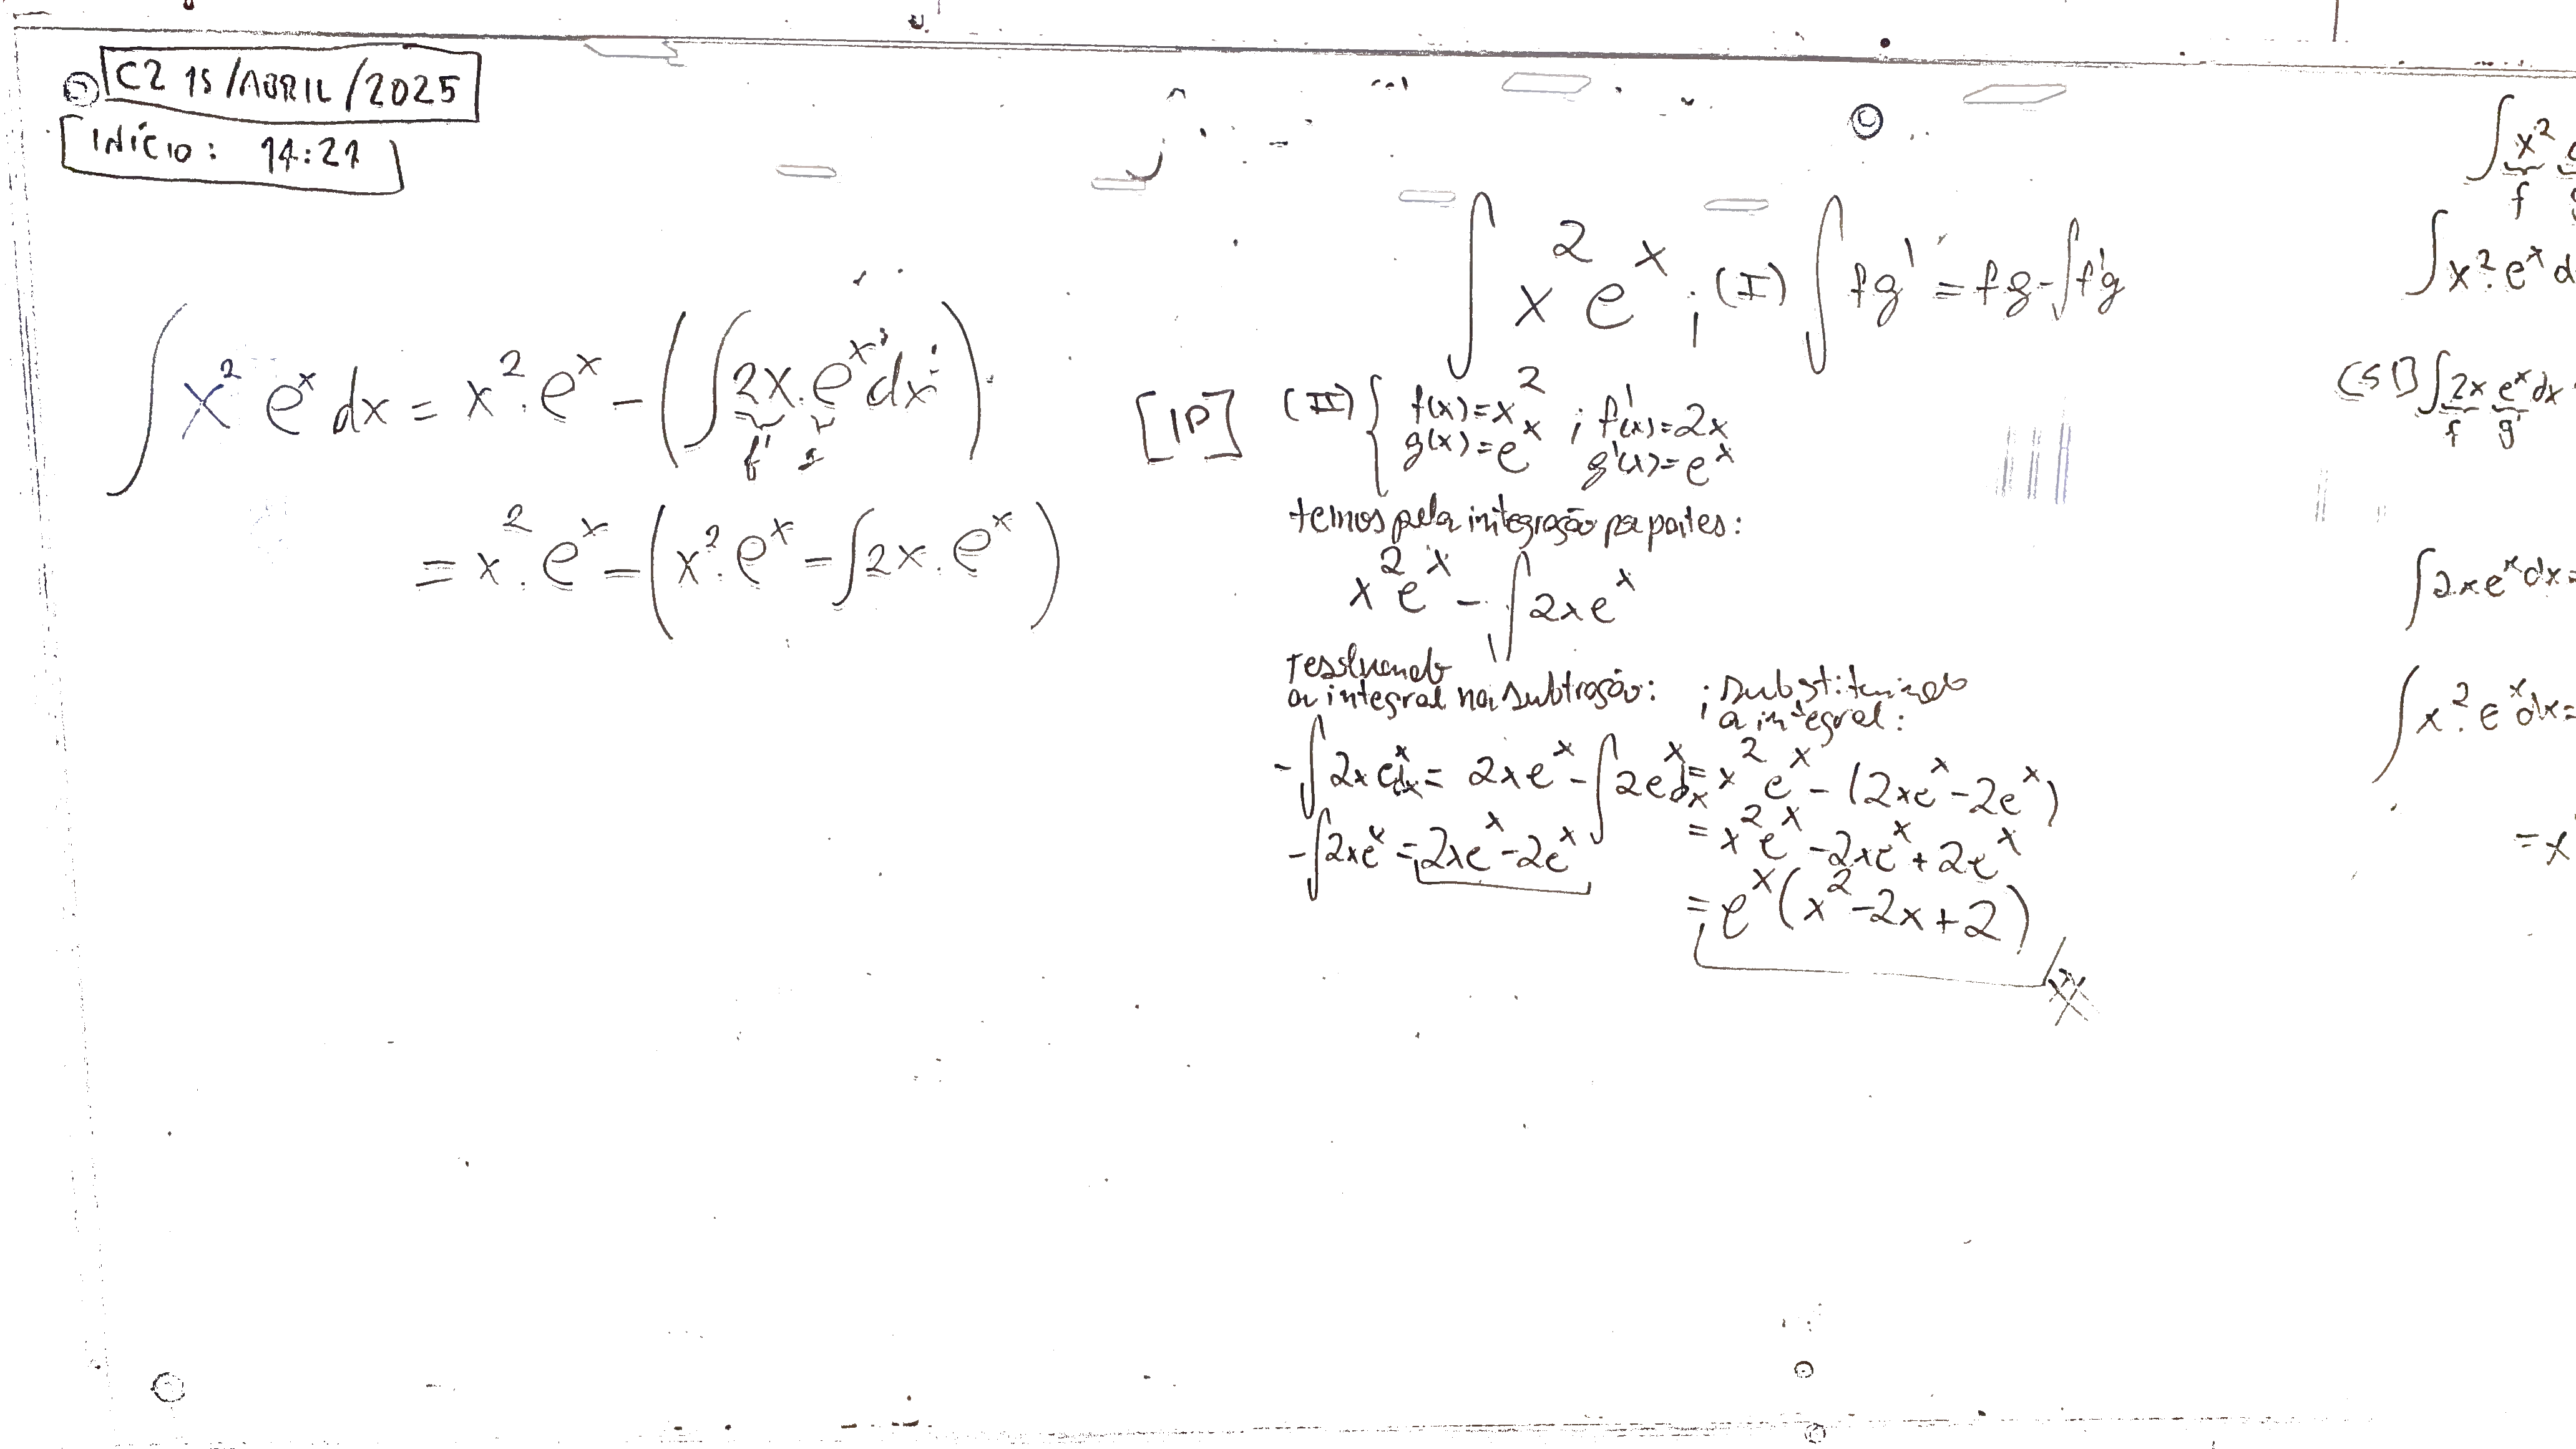 C2 15/ABRIL/2025
INÍCIO: 14:21
∫ x² eˣ dx = x² . eˣ - (∫ 2x . eˣ dx)
f' g
= x² . eˣ - (x² . eˣ - ∫ 2x . eˣ)
∫ x² eˣ ; (I) ∫ fg' = fg - ∫ f'g
[IP] (II) { f(x) = x² ; f'(x) = 2x
g(x) = eˣ g'(x) = eˣ
temos pela integração por partes:
x² eˣ - ∫ 2x eˣ
resolvendo
a integral na subtração:
- ∫ 2x eˣ dx = 2x eˣ - ∫ 2 eˣ dx
- ∫ 2x eˣ = 2x eˣ - 2 eˣ
; substituindo
; a integral:
= x² eˣ - (2x eˣ - 2 eˣ)
= x² eˣ - 2x eˣ + 2 eˣ
= eˣ (x² - 2x + 2)
∫ x²
f
∫ x² . eˣ d
∫ 2x eˣ dx
f g'
∫ 2x eˣ dx =
∫ x² . eˣ dx =
= x